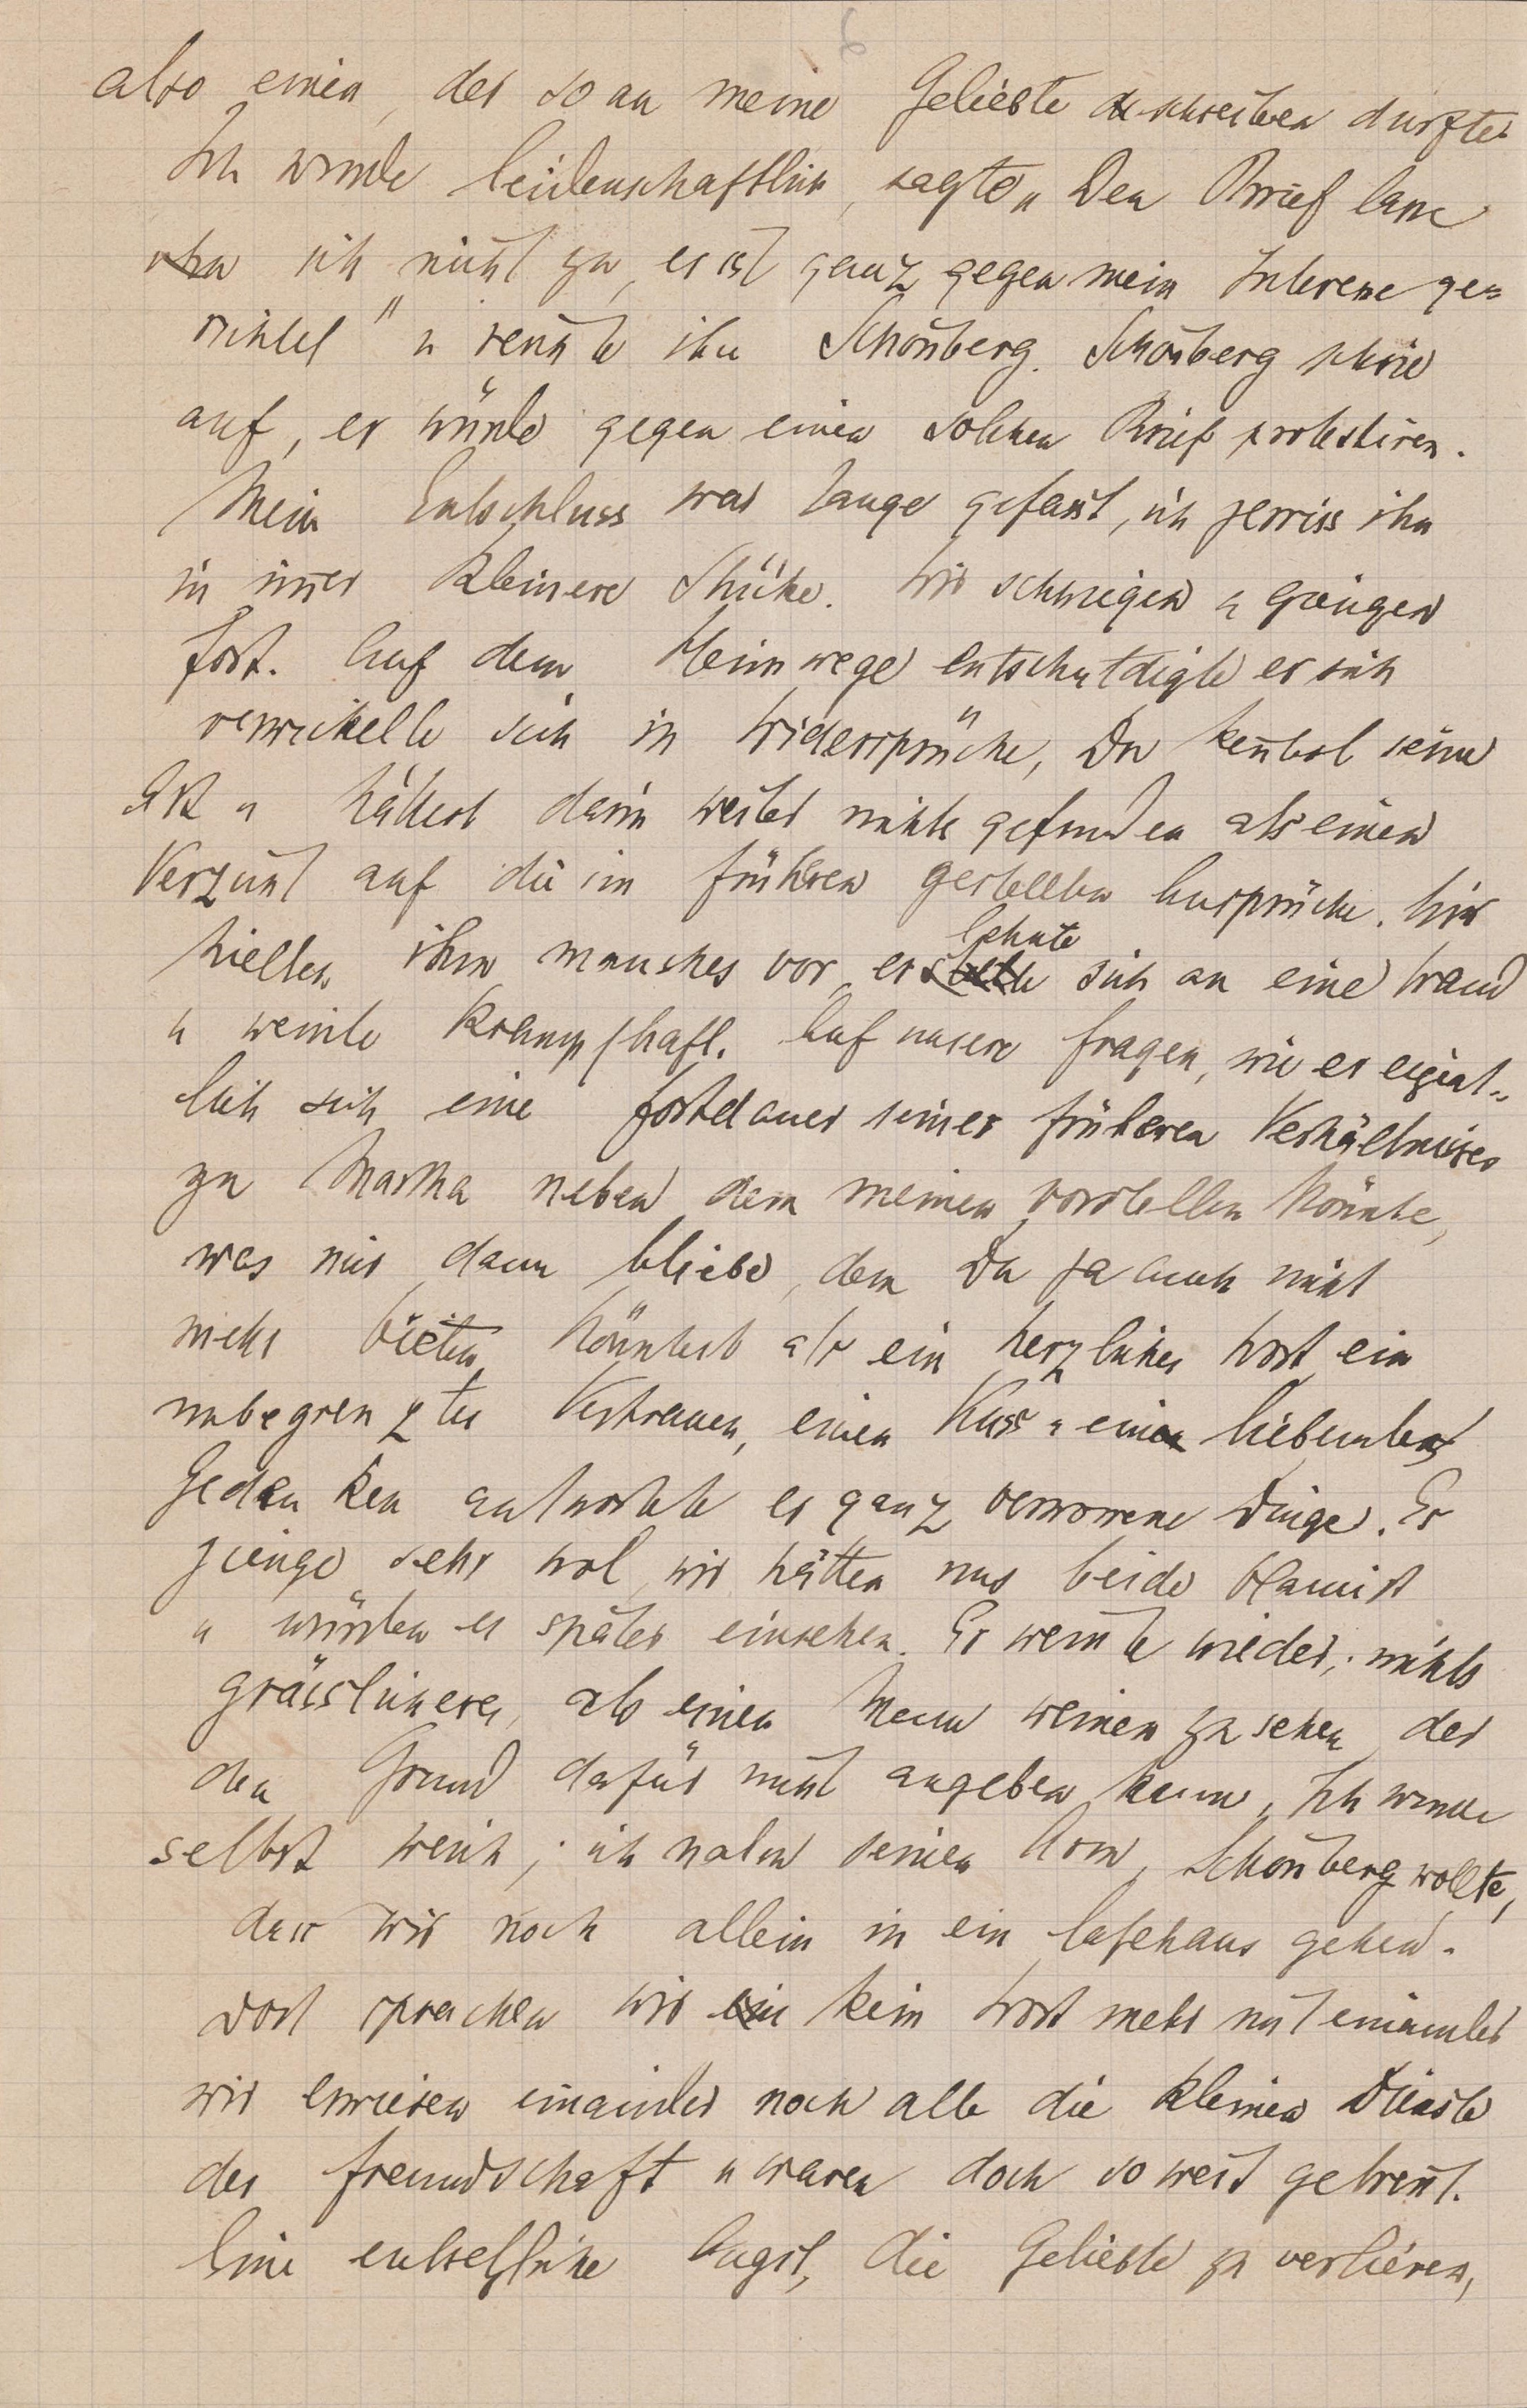 6
also einen, der so an meine Geliebte schreiben durfte
Ich wurde leidenschaftlich, sagte „Den Brief lasse
ich nicht zu, er ist ganz gegen mein Interesse ge=
richtet" u reichte ihn Schönberg. Schönberg schrie
auf, er würde gegen einen solchen Brief protestiren.
Mein Entschluss war lange gefasst, ich zerriss ihn
in im̅er kleinere Stücke. Wir schwiegen u giengen
fort. Auf dem Heimwege entschuldigte er sich
verwickelte sich in Widersprüche, Du ken̅test seine
Art u hättest darin weiter nichts gefunden als einen
Verzicht auf die im früheren gestellten Ansprüche. Wir
hielten ihm manches vor, er lehnte sich an eine Wand
u weinte krampfhaft. Auf unsere Fragen, wie er eigent=
lich sich eine Fortdauer seines früheren Verhältnisses
zu Martha neben dem meinen vorstellen könnte,
was mir dann bliebe, dem Du ja auch nicht
mehr bieten könntest als ein herzliches Wort, ein
unbegrenztes Vertrauen, einen Kuss u einen liebenden
Gedanken antwortete er ganz verworrene Dinge. Es
gienge sehr wol, wir hätten uns beide blamirt
u würden es später einsehen. Er weinte wieder; nichts
grässlicheres, als einen Mann weinen zu sehen, der
den Grund dafür nicht angeben kann. Ich wurde
selbst weich; ich nahm seinen Arm, Schönberg wollte,
dass wir noch allein in ein Cafehaus gehen.
Dort sprachen wir kein Wort mehr mit einander
wir erwiesen einander noch alle die kleinen Dienste
der Freundschaft u waren doch so weit getren̅t.
Eine entsetzliche Angst, die Geliebte zu verlieren,